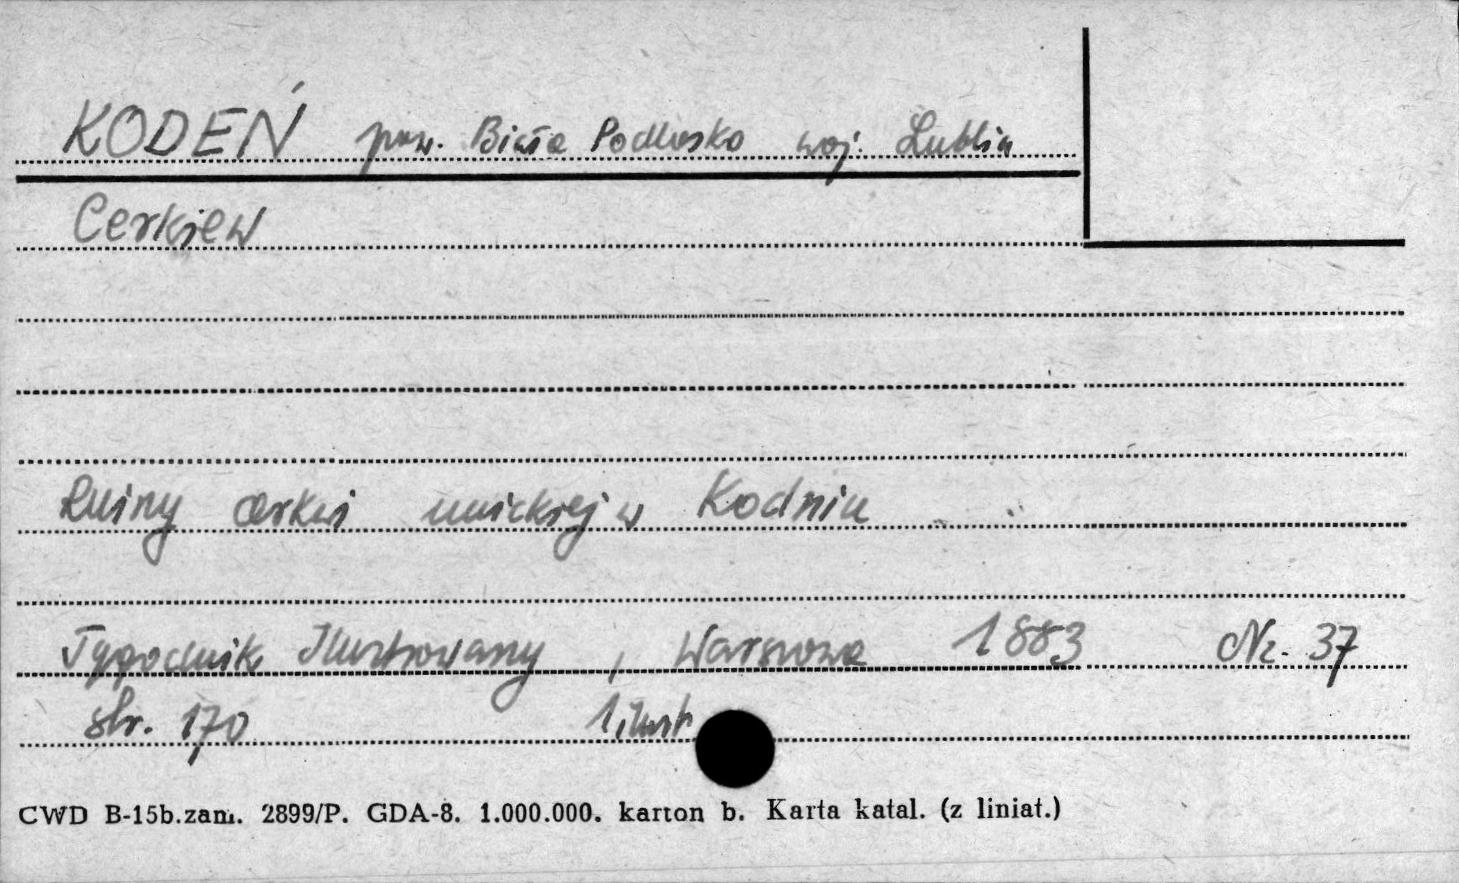 KODEŃ pow. Biała Podlaska woj. Lublin
Cerkiew
Ruiny cerkwi unickiej w Kodniu
Tygodnik Ilustrowany, Warszawa 1883 Nr. 37
str. 170 1 ilustr
CWD B-15b.zam. 2899/P. GDA-8. 1.000.000. karton b. Karta katal. (z liniat.)